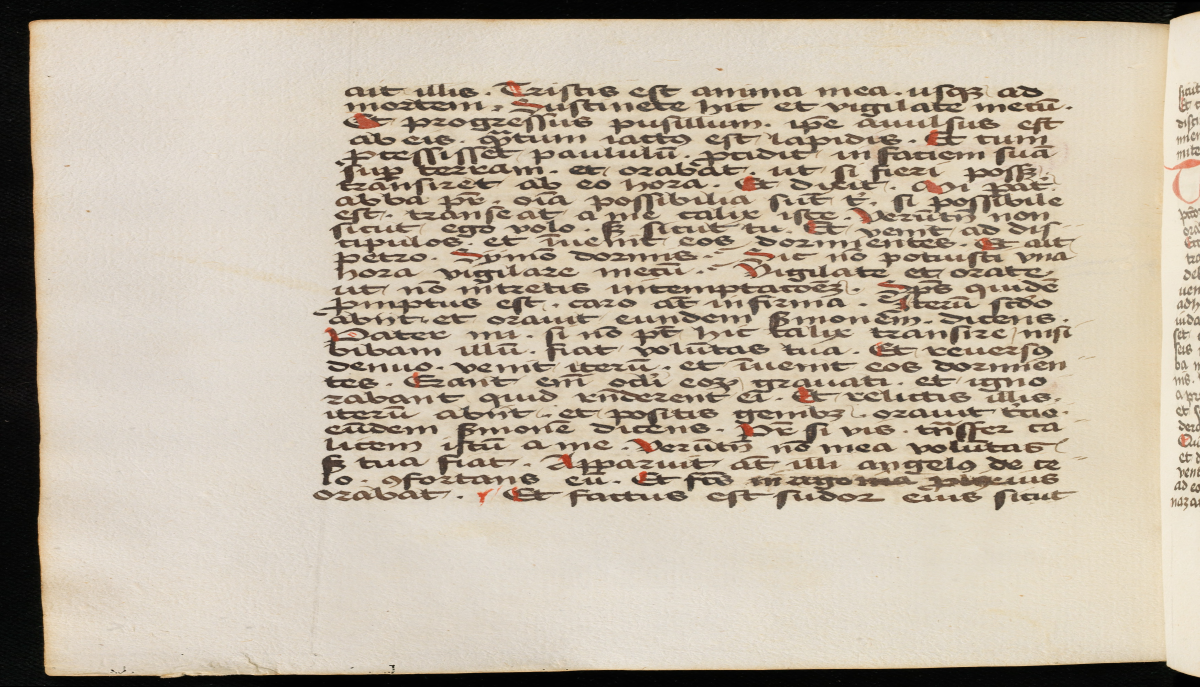 ait illis . Tristis est anima mea . usqꝫ ad
mortem . Sustinete hic et vigilate mecū .
Et progressus pusillum . ip̄e avulsus est
ab eis . qͣtum iactus est lapidis . Et cum
ꝓcessisset paululū ꝓcidit in faciem suā
sup terram . et orabat . ut si fieri possꝫ .
transiret ab eo hora . Et dixit . Mi pat̄
abba pr̄ . oīa possibilia sūt t̄ . si possibile
est . transeat a me calix iste . Verūtn̄ non
sicut ego volo . sꝫ sicut tu . Et venit ad dis-
cipulos . et īuenit eos dormientes . Et ait
petro . Symō dormis . Sic nō potuisti una
hora vigilare mecū . Vigilate et orate
ut nō intretis in temptacōeꝫ . Sp̄s quidē
ꝓmptus est . caro at̄ infirma . Iterū scd̄o
abiit . et oravit eundem sermonem . dicens .
Pater mi . si nō pt̄ hic calix transire nisi
bibam illū . fiat volūtas tua . Et reversꝰ
denuo . venit iterū . et īuenit eos dormien
tes . Erant em̄ ocĺi eoꝝ gravati . et igno
rabant quid rn̄derent ei . Et relictis illis .
iterū abiit . et positis genibꝫ . oravit t̄cio .
eūdem sermonē dicens . Pr̄ si vis . trāsfer ca
licem istū a me . Verūtn̄ nō mea volūtas
sꝫ tua fiat . Apparuit at̄ illi angelꝰ de ce
lo . ꝯfortans eū . Et fc̄s in agonia ꝓlixius
orabat . Et factus est sudor eius sicut